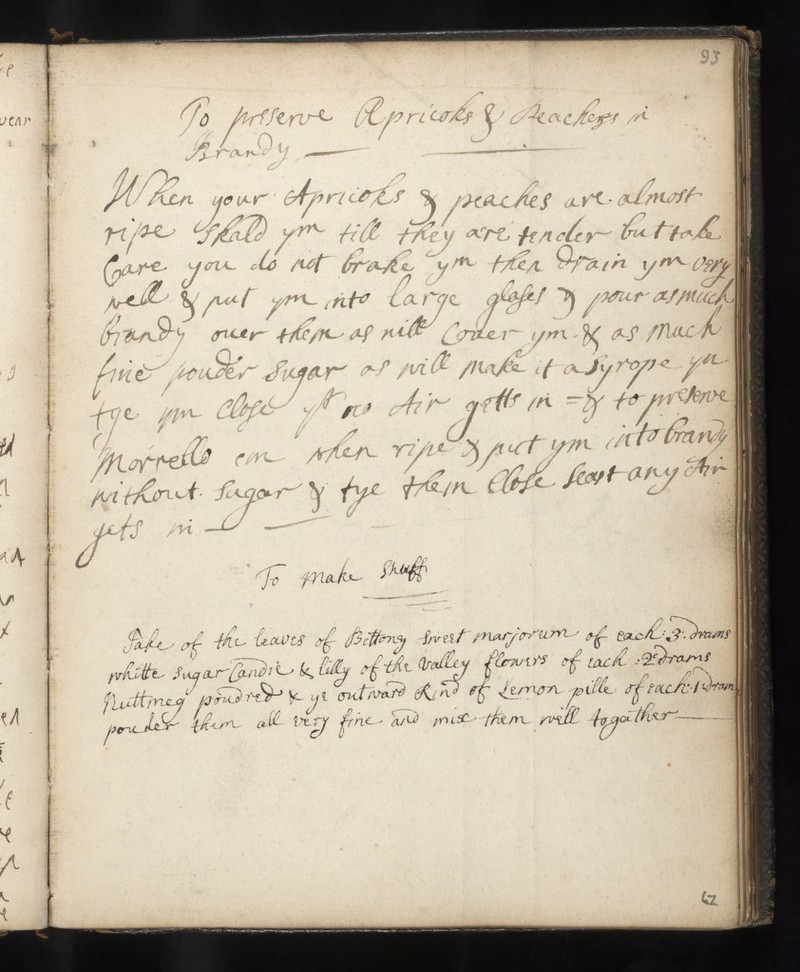 93
To preserve Apricoks & Peaches in
Brandy
When your Apricoks & peaches are almost
ripe Skald ym till they are tender but take
Care you do not brake ym then drain ym very
well & put ym into large glases & pour as much
brandy ouer them as will Couer ym & as much
fine pouder Sugar as will make it a Syrope yn
tye ym Close yt no Air getts in = & to preserve
Morrello when ripe & put ym into brandy
without Sugar & tye them Close least any Air
gets in
To make Snuff
Take of the leaves of Bittony sweet marjorum of each :3: drams
whitte Sugar Candie & lilly of the valley flowers of each :2 drams
Nuttmeg poudred & ye outward Rind of Lemon pille of each :1 dram
pouder them all very fine and mix them well togather
62